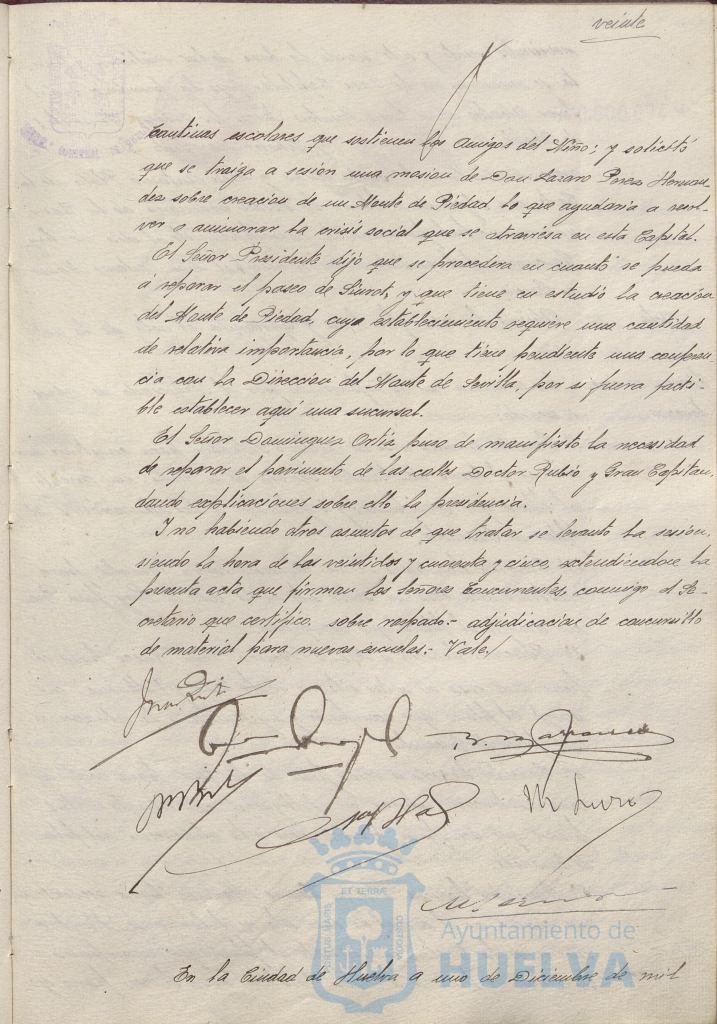 veinte
Cantinas escolares que sostienen los Amigos del Niño; y solicitó
que se traiga a sesión una mosion de Don Lazaro Perez Hernan-
dez sobre creacion de un Monte de Piedad lo que ayudaria a resol-
ver o aminorar la crisis social que se atraviesa en esta Capital.
El Señor Presidente dijo que se procederá en cuanto se pueda
á reparar el paseo de Siurot, y que tiene en estudio la creacion
del Monte de Piedad, cuyo establecimiento requiere una cantidad
de relativa importancia, por lo que tiene pendiente una conferen-
cia con la Direccion del Monte de Sevilla, por si fuera facti-
ble establecer aquí una sucursal.
El Señor Dominguez Ortiz puso de manifiesto la necesidad
de reparar el pavimento de las calles Doctor Rubio y Gran Capitan,
dando explicaciones sobre ello la presidencia.
Y no habiendo otros asuntos de que tratar se levantó la sesion,
siendo la hora de las veintidos y cuarenta y cinco, extendiendose la
presente acta que firman los Señores Concurrentes, conmigo el Se-
cretario que certifico. sobre raspado.- adjudicacion de concursillo
de material para nuevas escuelas.- Vale./
ET TERRÆ
PORTUS MARIS
CUSTODIA
Ayuntamiento de
HUELVA
En la Ciudad de Huelva a uno de Diciembre de mil